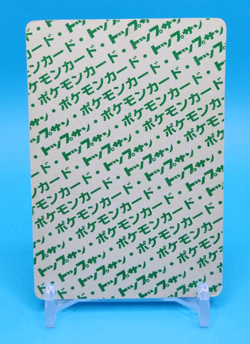 トップサン・ポケモンカード・トップサン
・ポケモンカード・トップサン・
トップサン・ポケモンカード・
ポケモンカード・トップサン・ポケモンカード
・トップサン・ポケモンカード・トップサン
ポケモンカード・トップサン・ポケモンカード
トップサン・ポケモンカード・トップサン
・ポケモンカード・トップサン・
トップサン・ポケモンカード・
ポケモンカード・トップサン・ポケモンカード